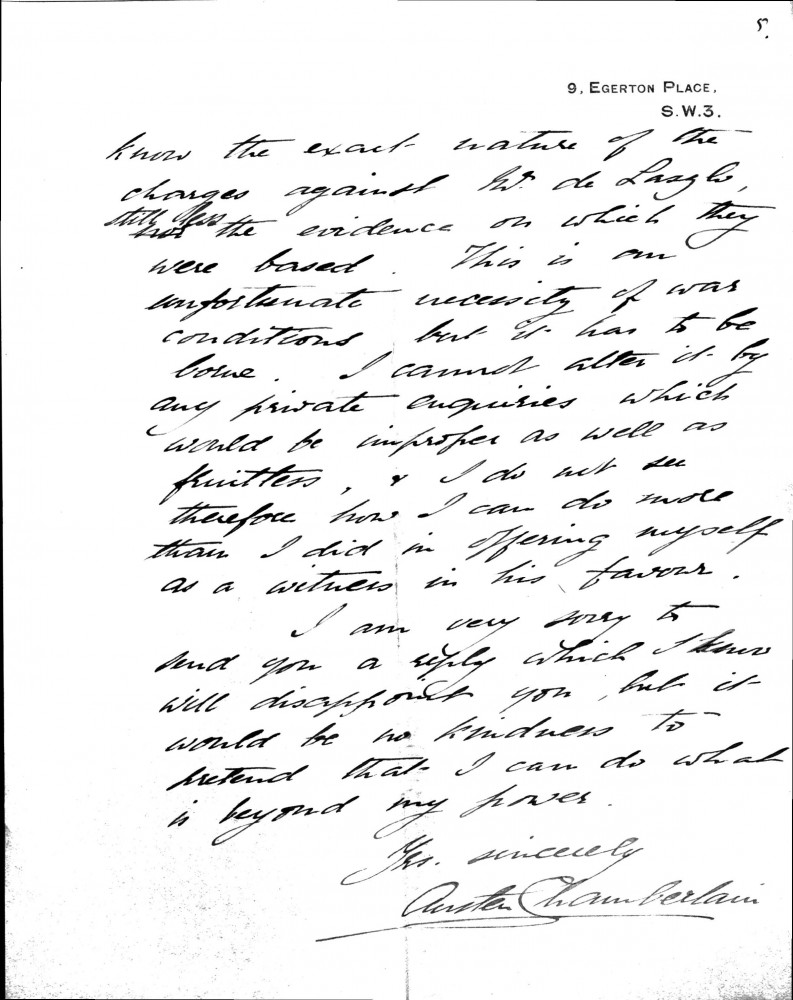 5.
9, EGERTON PLACE,
S.W.3.
know the exact nature of the
charges against Mr. de Laszlo,
still less
the evidence on which they
were based. This is an
unfortunate necessity of war
conditions but it has to be
borne. I cannot alter it by
any private enquiries which
would be improper as well as
fruitless, & I do not see
therefore how I can do more
than I did in offering myself
as a witness in his favour.
I am very sorry to
send you a reply which I know
will disappoint you, but it
would be no kindness to
pretend that I can do what
is beyond my power.
Yrs. sincerely
Austen Chamberlain